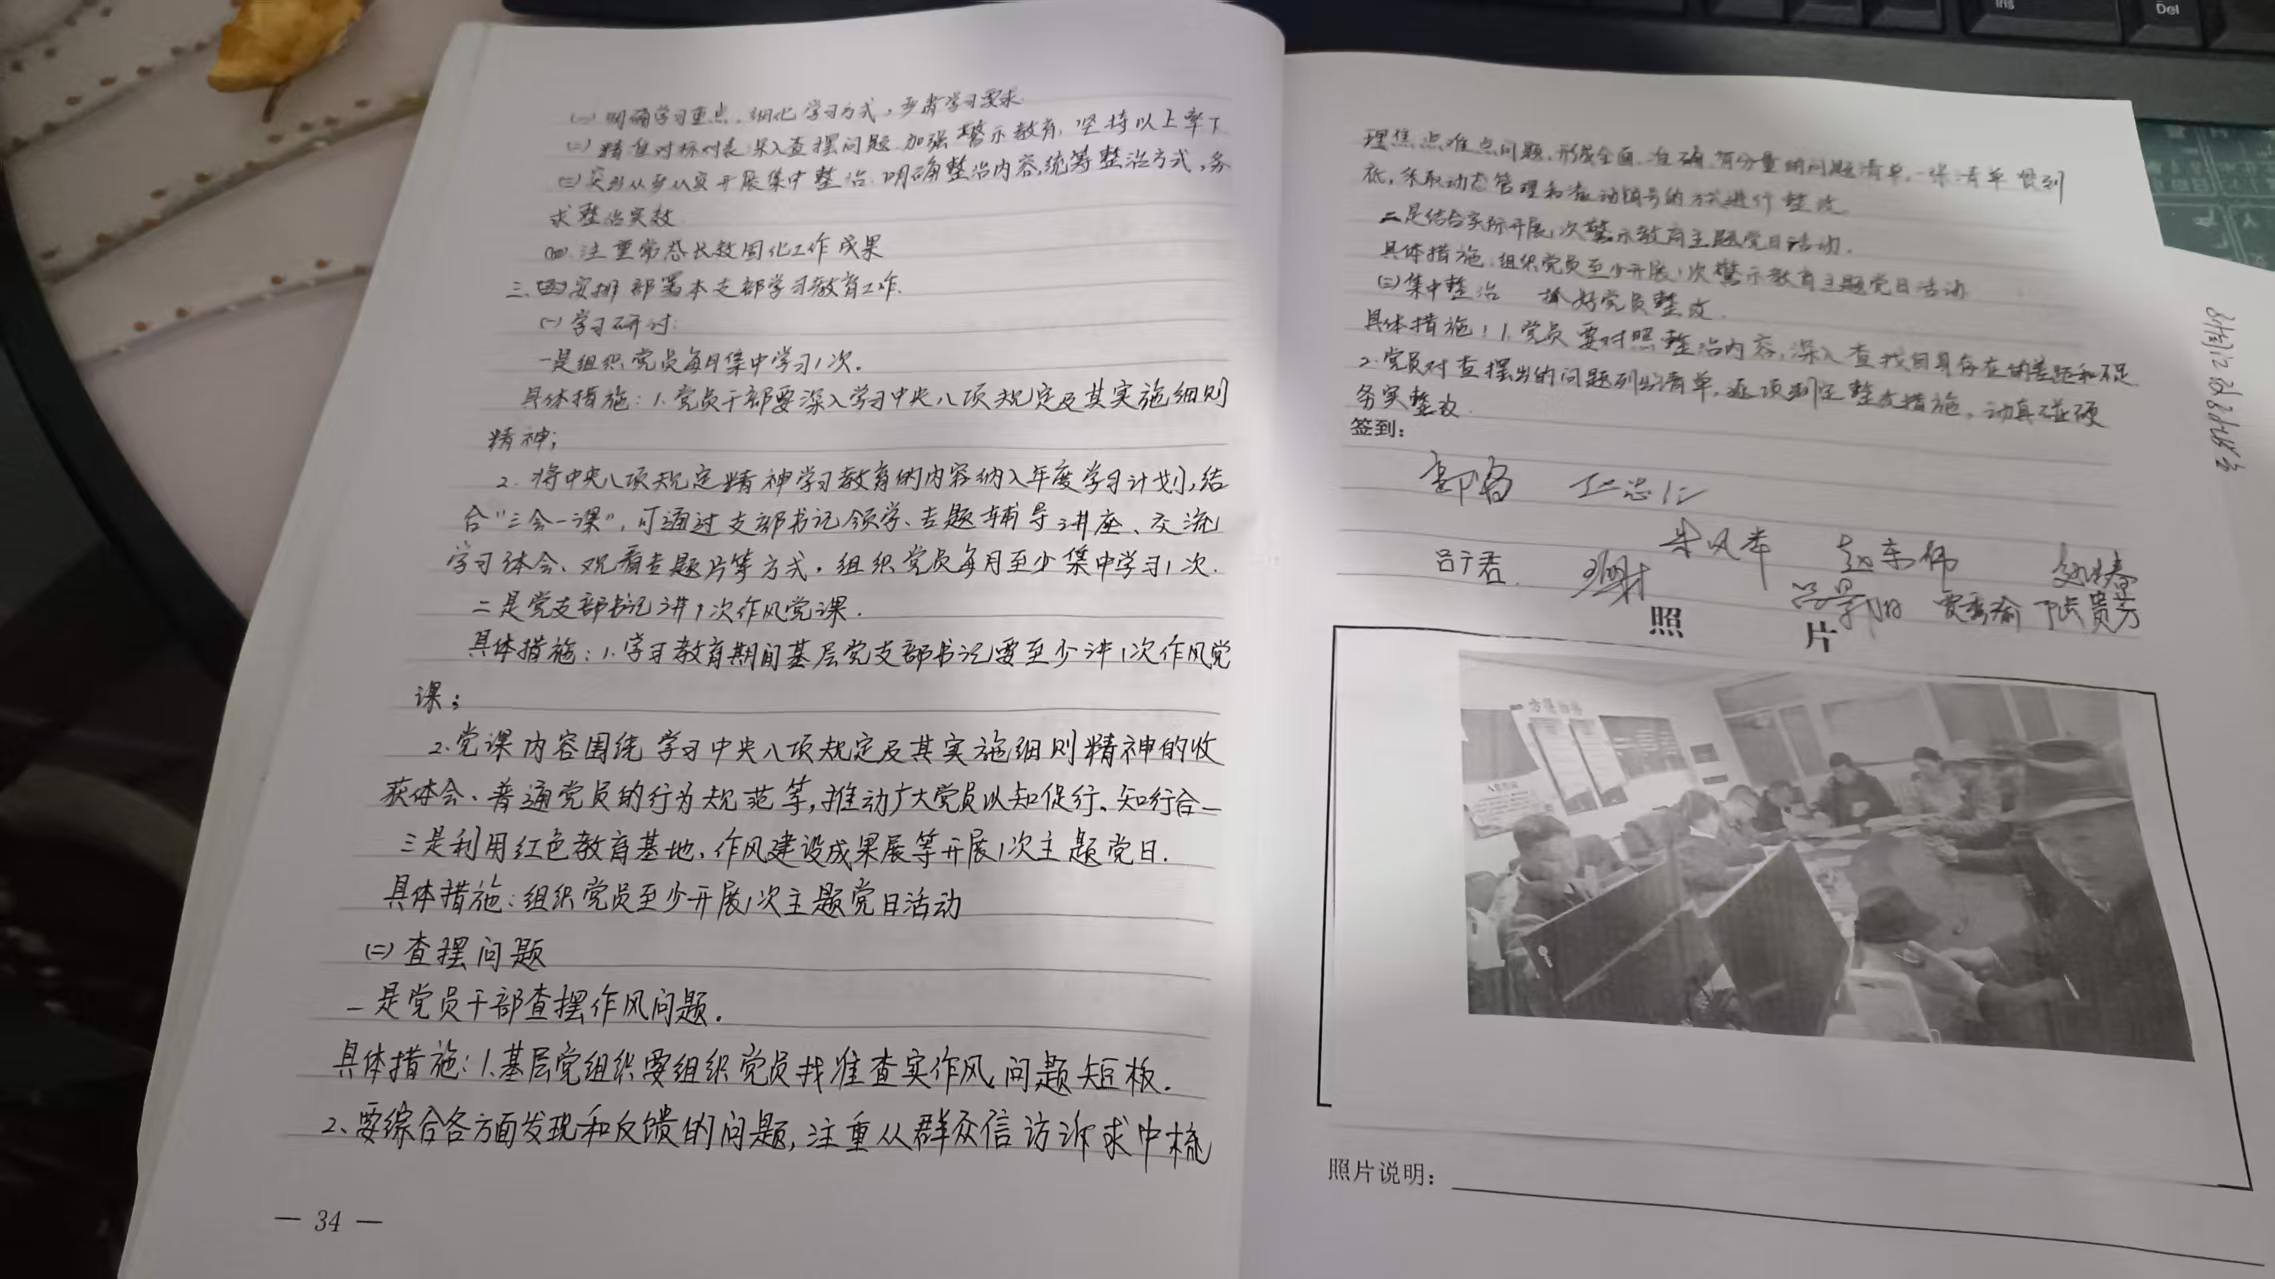 (一)明确学习重点、细化学习方式,严肃学习要求
(二)精准对标对表深入查摆问题.加强警示教育,坚持以上率下
(三)突出从严从实开展集中整治.明确整治内容,统筹整治方式,务
求整治实效
(四)注重常态长效固化工作成果
三.安排部署本支部学习教育工作.
(一)学习研讨:
一是组织党员每月集中学习1次.
具体措施:1.党员干部要深入学习中央八项规定及其实施细则
精神;
2.将中央八项规定精神学习教育的内容纳入年度学习计划,结
合"三会一课",可通过支部书记领学、专题辅导讲座、交流
学习体会、观看专题片等方式,组织党员每月至少集中学习1次.
二是党支部书记讲1次作风党课.
具体措施:1.学习教育期间基层党支部书记要至少讲1次作风党
课;
2.党课内容围绕学习中央八项规定及其实施细则精神的收
获体会、普通党员的行为规范等,推动广大党员以知促行、知行合一
三是利用红色教育基地、作风建设成果展等开展1次主题党日.
具体措施:组织党员至少开展1次主题党日活动
(二)查摆问题
一是党员干部查摆作风问题.
具体措施:1.基层党组织要组织党员找准查实作风问题短板.
2.要综合各方面发现和反馈的问题,注重从群众信访诉求中梳
— 34 —
理焦点难点问题,形成全面、准确、有分量的问题清单,一张清单管到
底,采取动态管理和滚动销号的方式进行整改
二是结合实际开展1次警示教育主题党日活动.
具体措施:组织党员至少开展1次警示教育主题党日活动
(三)集中整治 抓好党员整改.
具体措施:1.党员要对照整治内容,深入查找自身存在的差距和不足
2.党员对查摆出的问题列出清单,逐项制定整改措施,动真碰硬
务实整改.
签到:
朱风华 赵东伟
吕子君
照 片
照片说明: